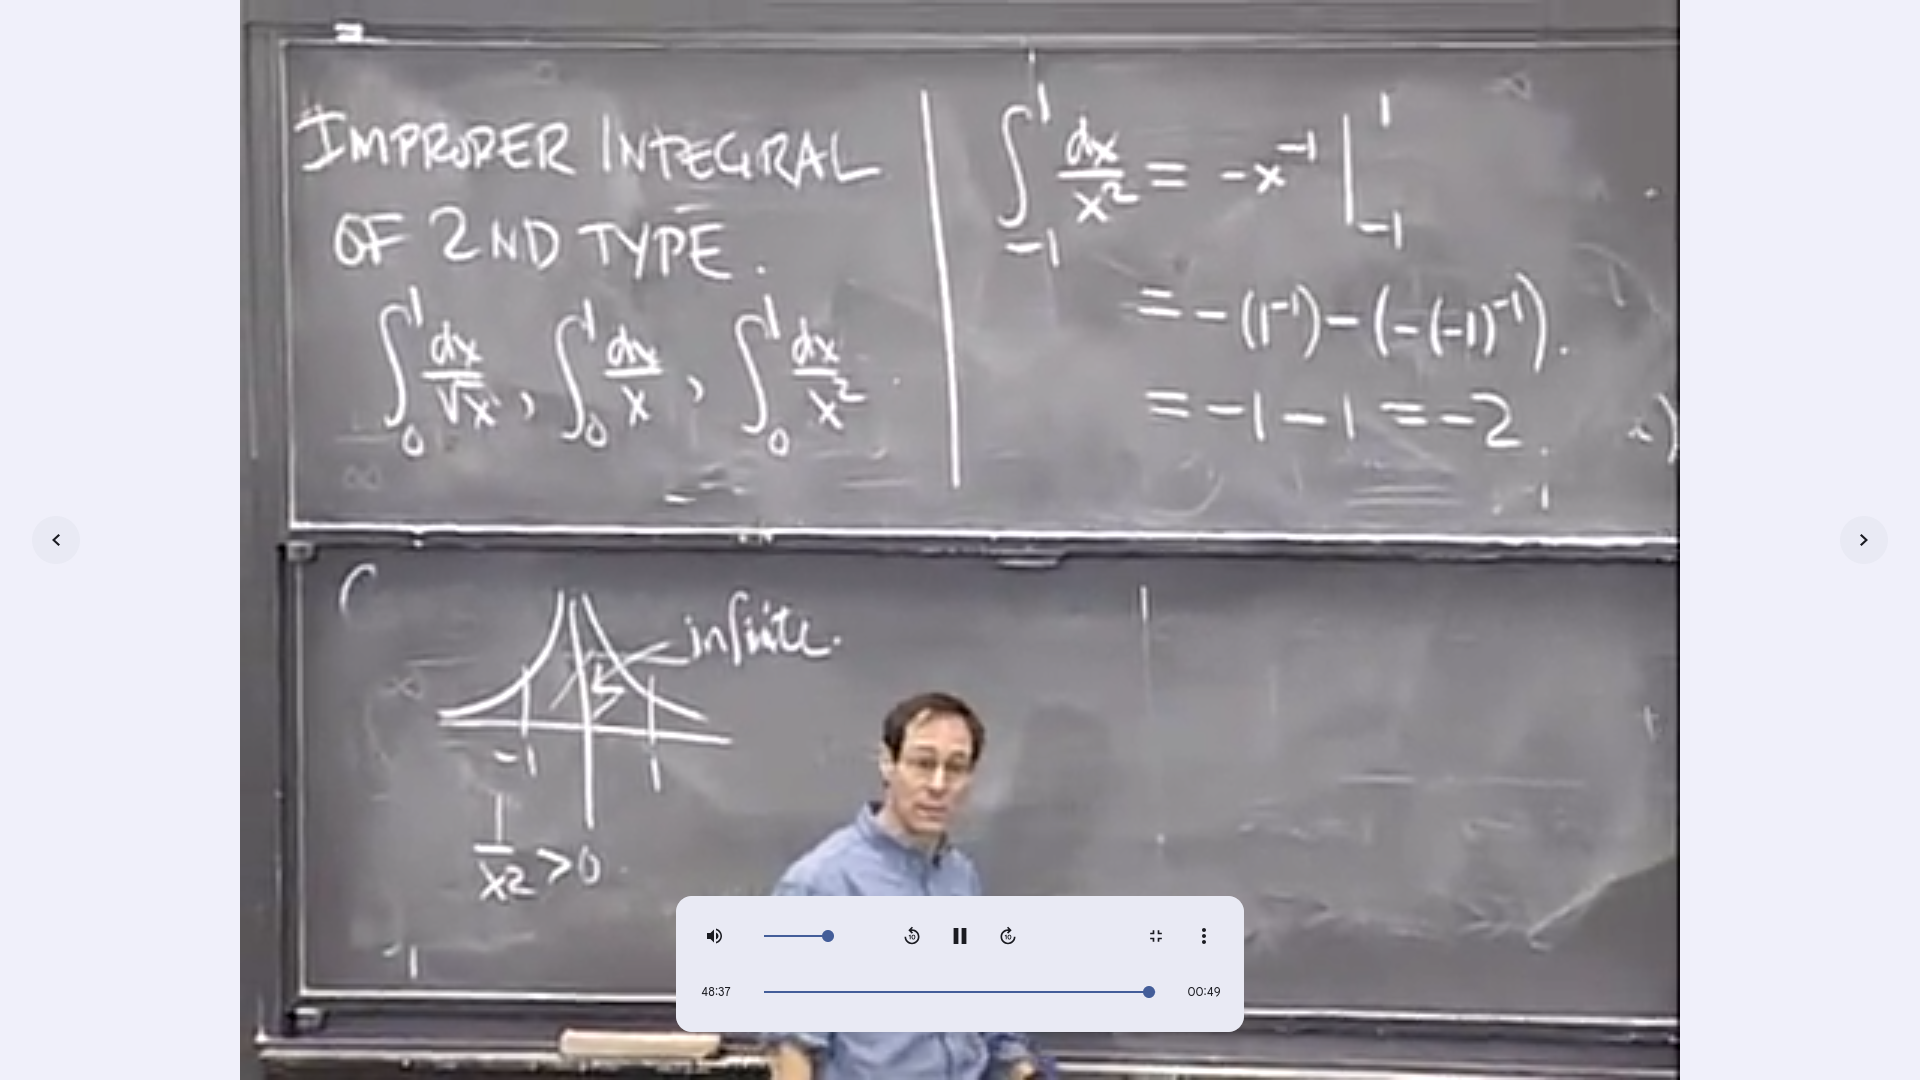 IMPROPER INTEGRAL
OF 2ND TYPE.
∫₀¹ dx/√x , ∫₀¹ dx/x , ∫₀¹ dx/x²
∫₋₁¹ dx/x² = -x⁻¹ |₋₁¹
= -(1⁻¹) - (-(-1)⁻¹).
= -1 - 1 = -2.
infinite.
-1
1
1/x² > 0
48:37
00:49